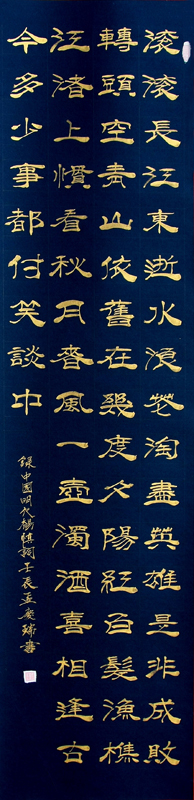 滾滾長江東逝水浪花淘盡英雄是非成敗
轉頭空青山依舊在幾度夕陽紅白髮漁樵
江渚上慣看秋月春風一壺濁酒喜相逢古
今多少事都付笑談中
錄中國明代楊慎詞壬辰孟慶瑞書